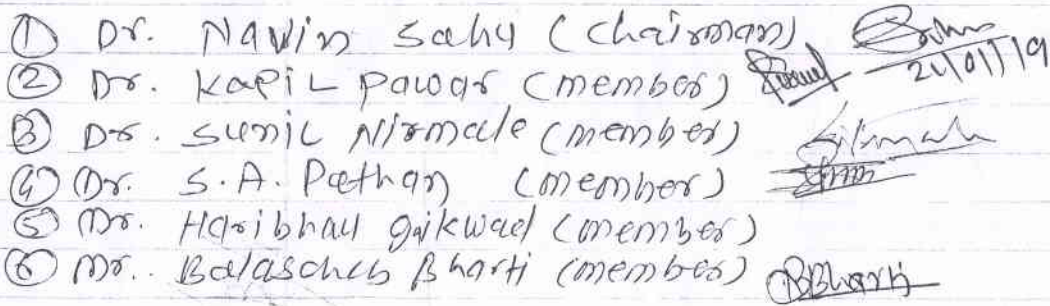 ① Dr. Navin Sahu (Chairman)
21/01/19
② Dr. Kapil Pawar (member)
③ Dr. Sunil Nirmale (member)
④ Dr. S.A. Pathan (member)
⑤ Dr. Haribhau Gaikwad (member)
⑥ Mr. Balasaheb Bharti (member) BBharti